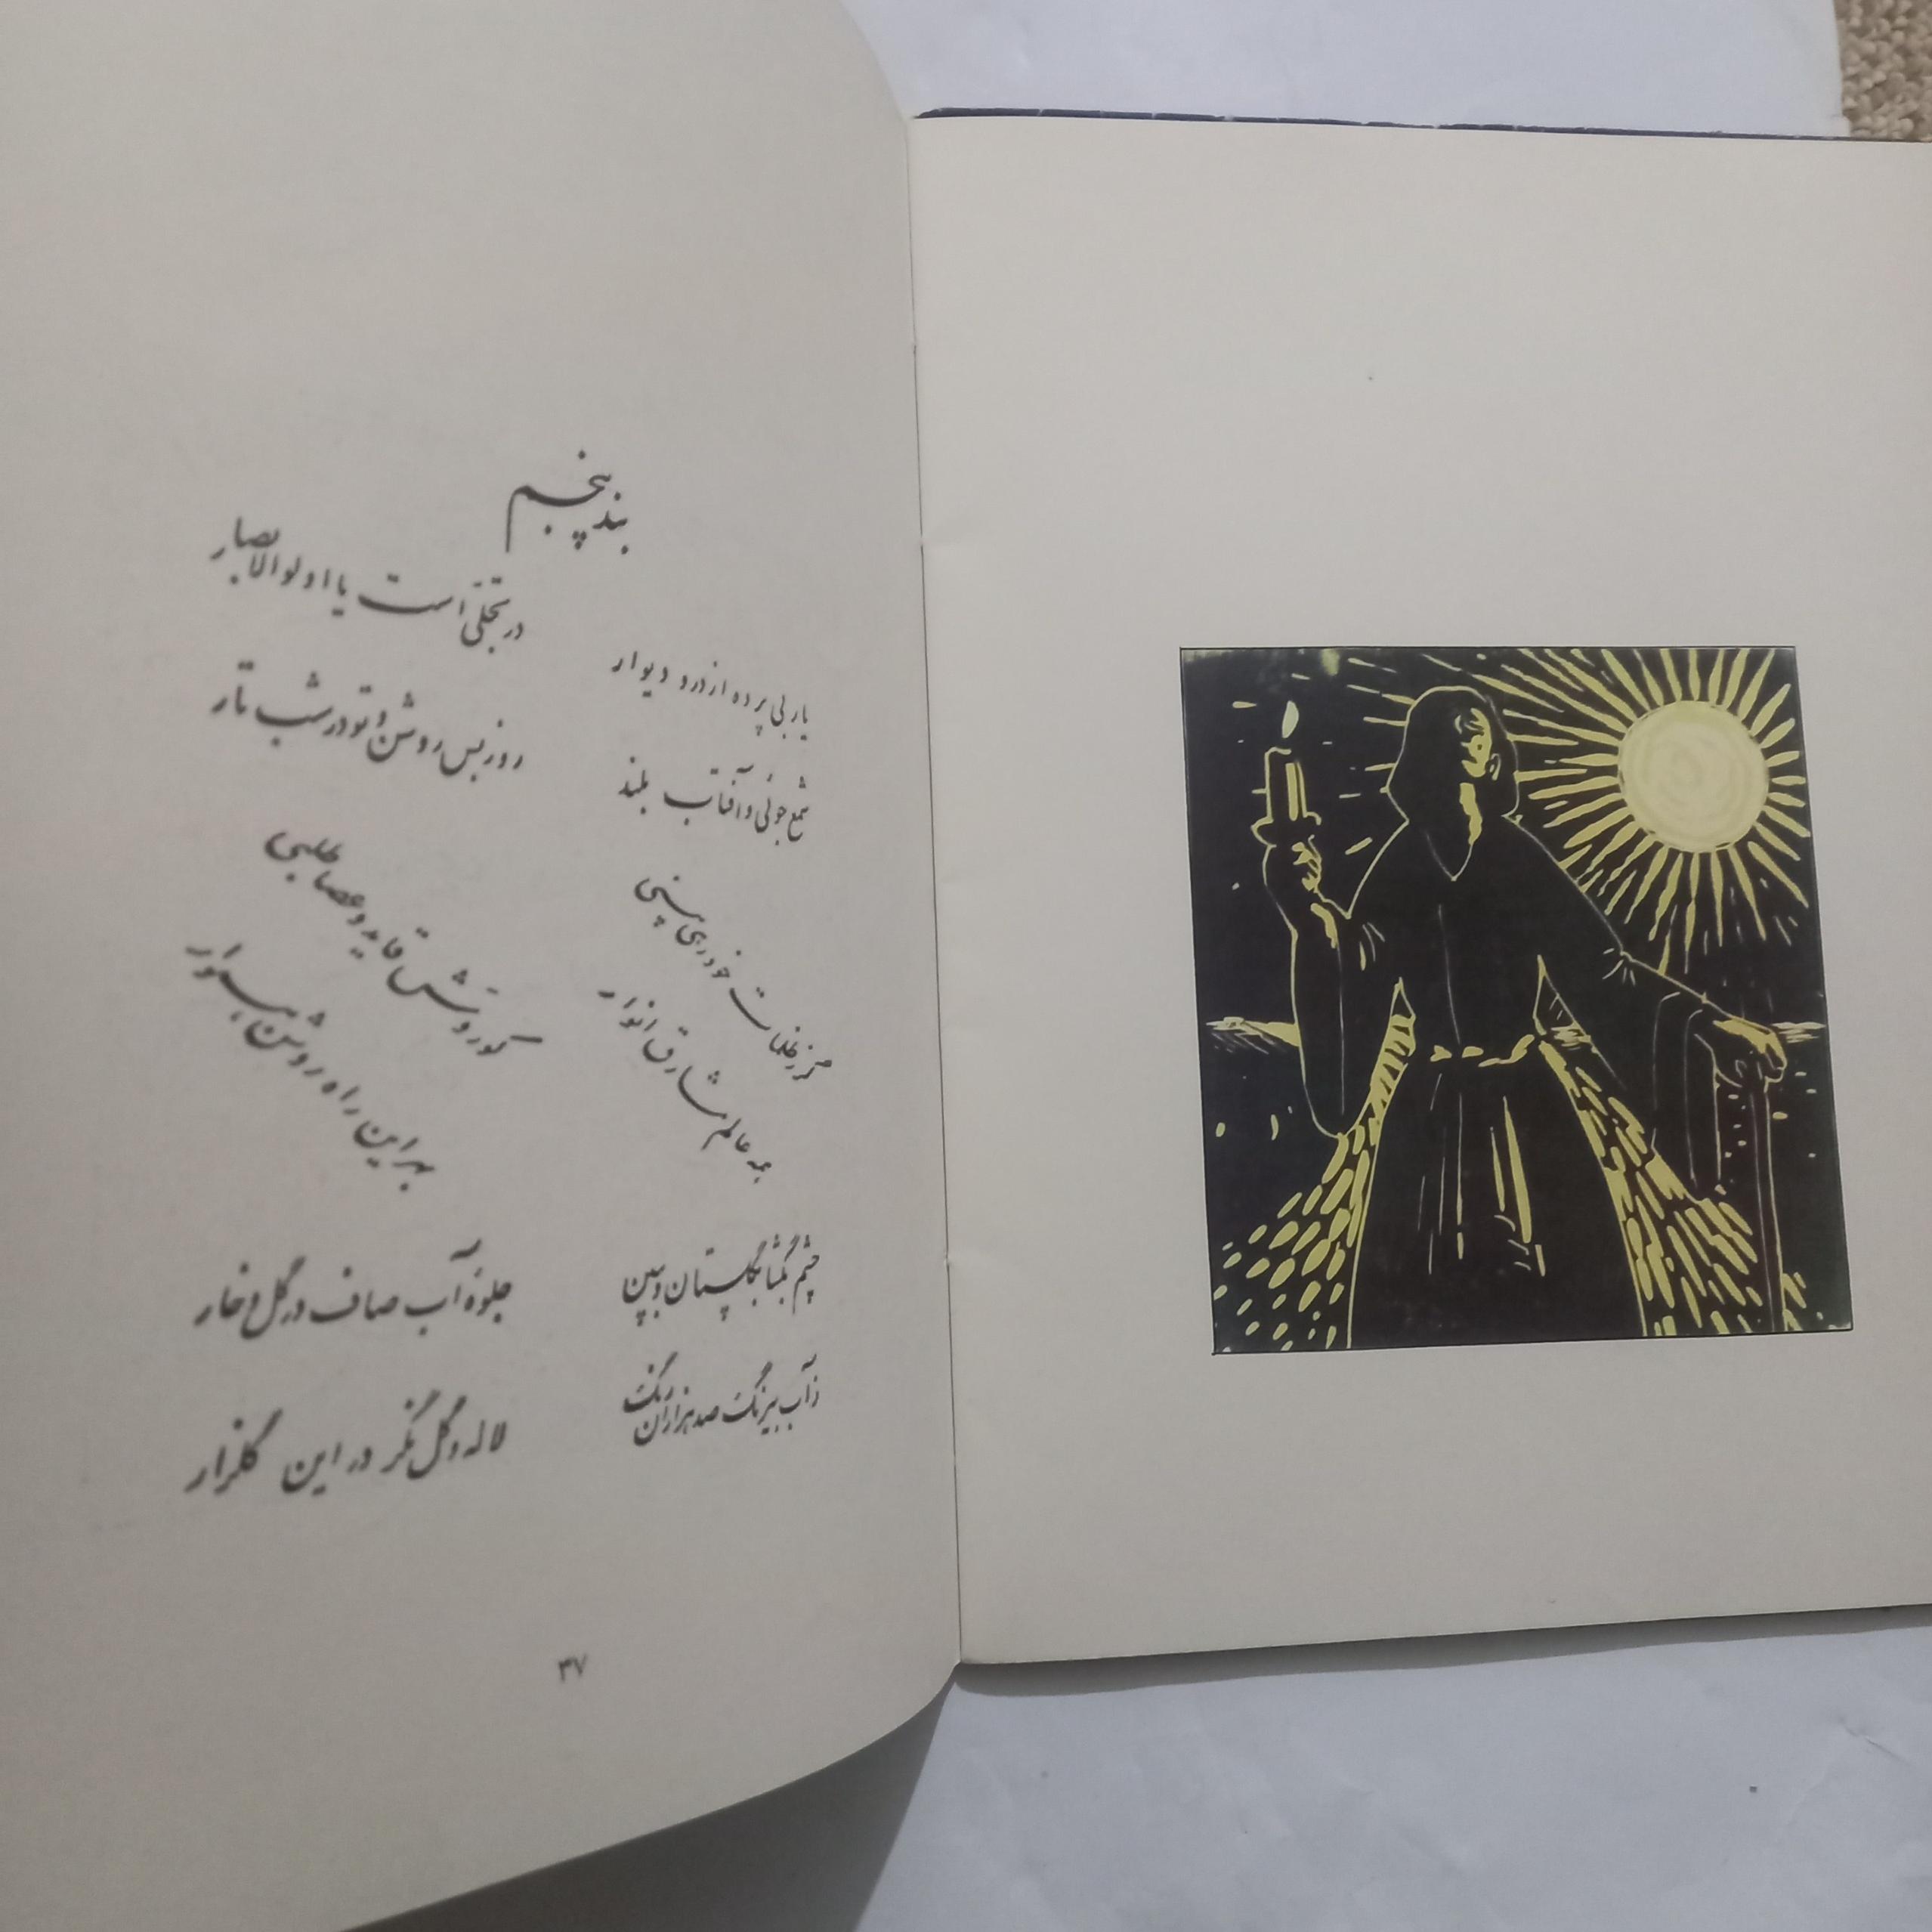 بند پنجم
یار بی پرده از در و دیوار
در تجلّی است یا اولوالابصار
شمع جوئی و آفتاب بلند
روز بس روشن و تو در شب تار
گر ز ظلمات خود رهی بینی
همه عالم مشارق انوار
کور وَش قاید و عصا طلبی
بهر این راه روشن هموار
چشم بگشا بگلستان و ببین
جلوهٔ آب صاف در گل و خار
زآب بیرنگ صد هزاران رنگ
لاله و گل نگر در این گلزار
۳۷